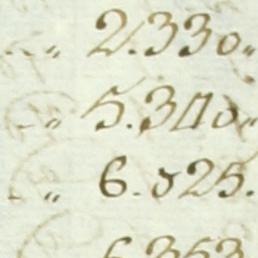 „ 2.330„
„ 5.340„
„ 6.525.
6.353